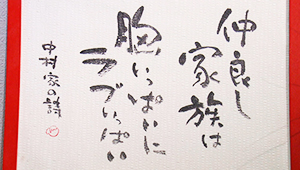 仲良し
家族は
胸いっぱいに
ラブいっぱい
中村家の詩